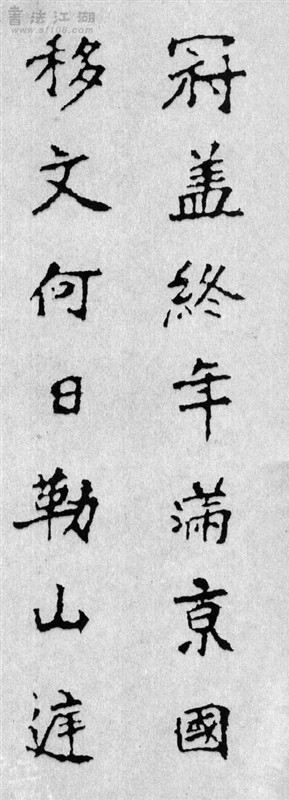 書法江湖
www.sf108.com
冠盖終年滿京國
移文何日勒山庭